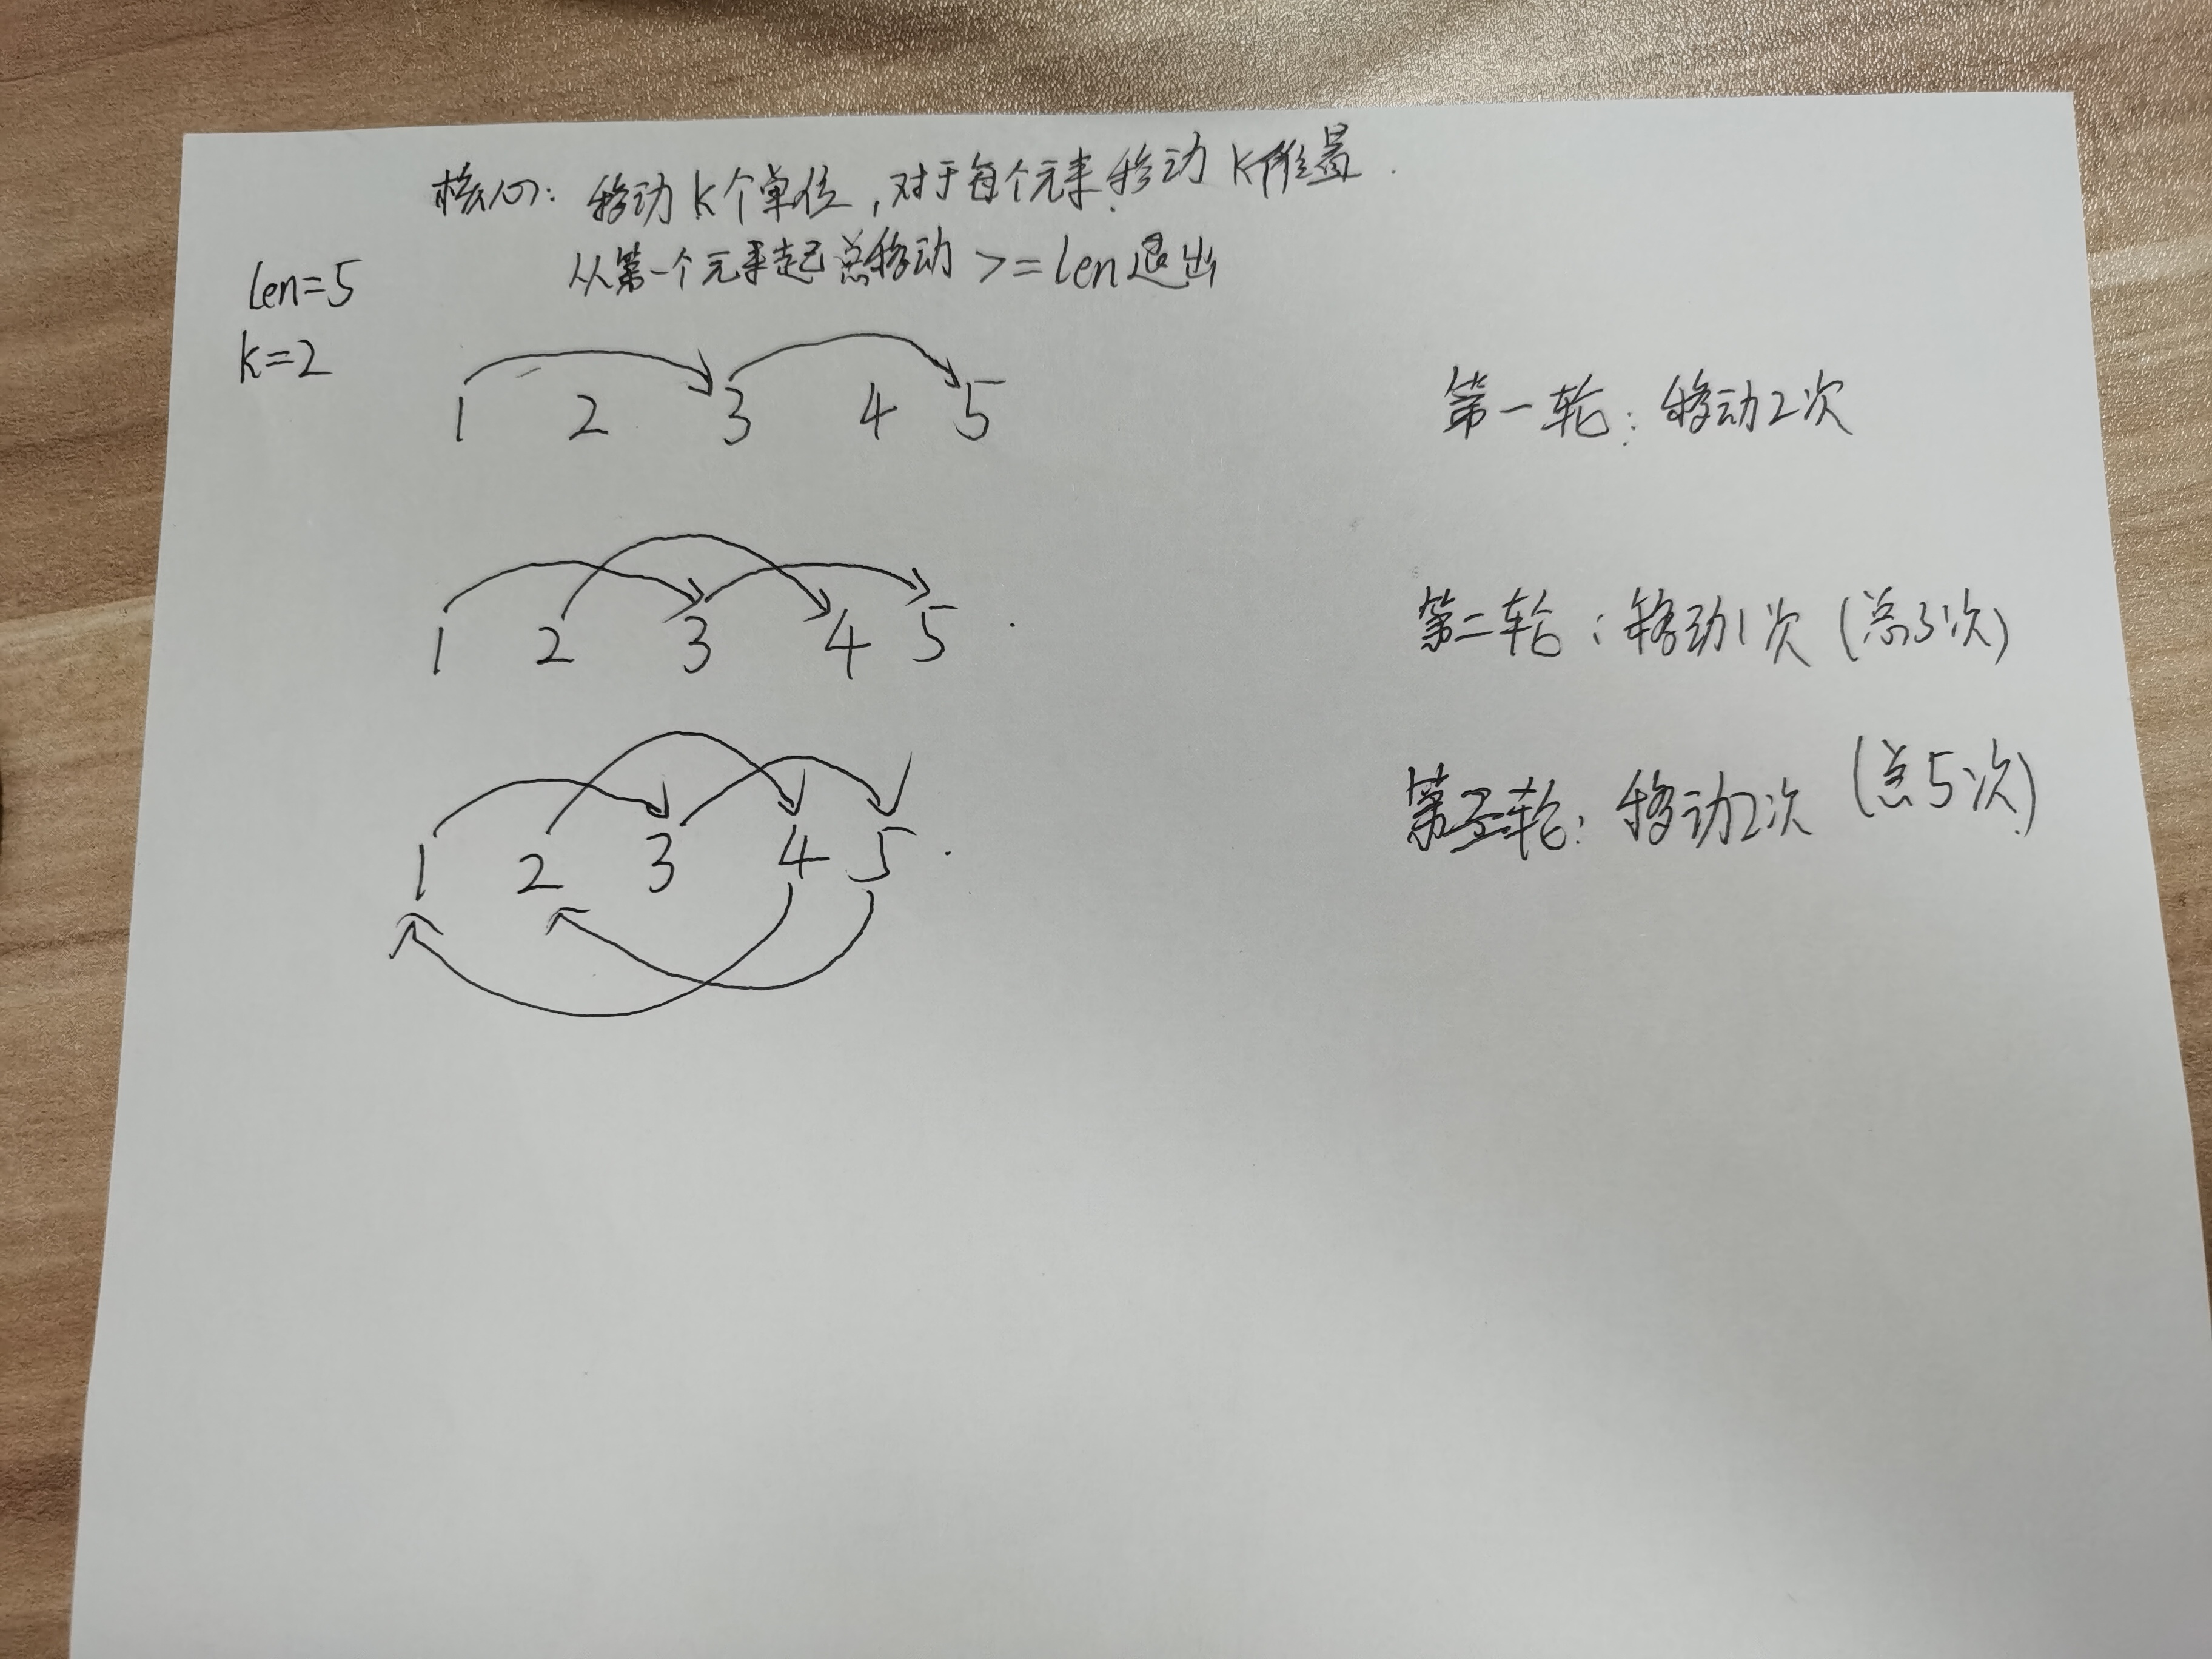 核心: 移动 k 个单位,对于每个元素移动 k 位置.
从第一个元素起总移动 >= len 退出
len=5
k=2
1 2 3 4 5
第一轮: 移动2次
1 2 3 4 5
第二轮: 移动1次 (总3次)
1 2 3 4 5
第三轮: 移动2次 (总5次)